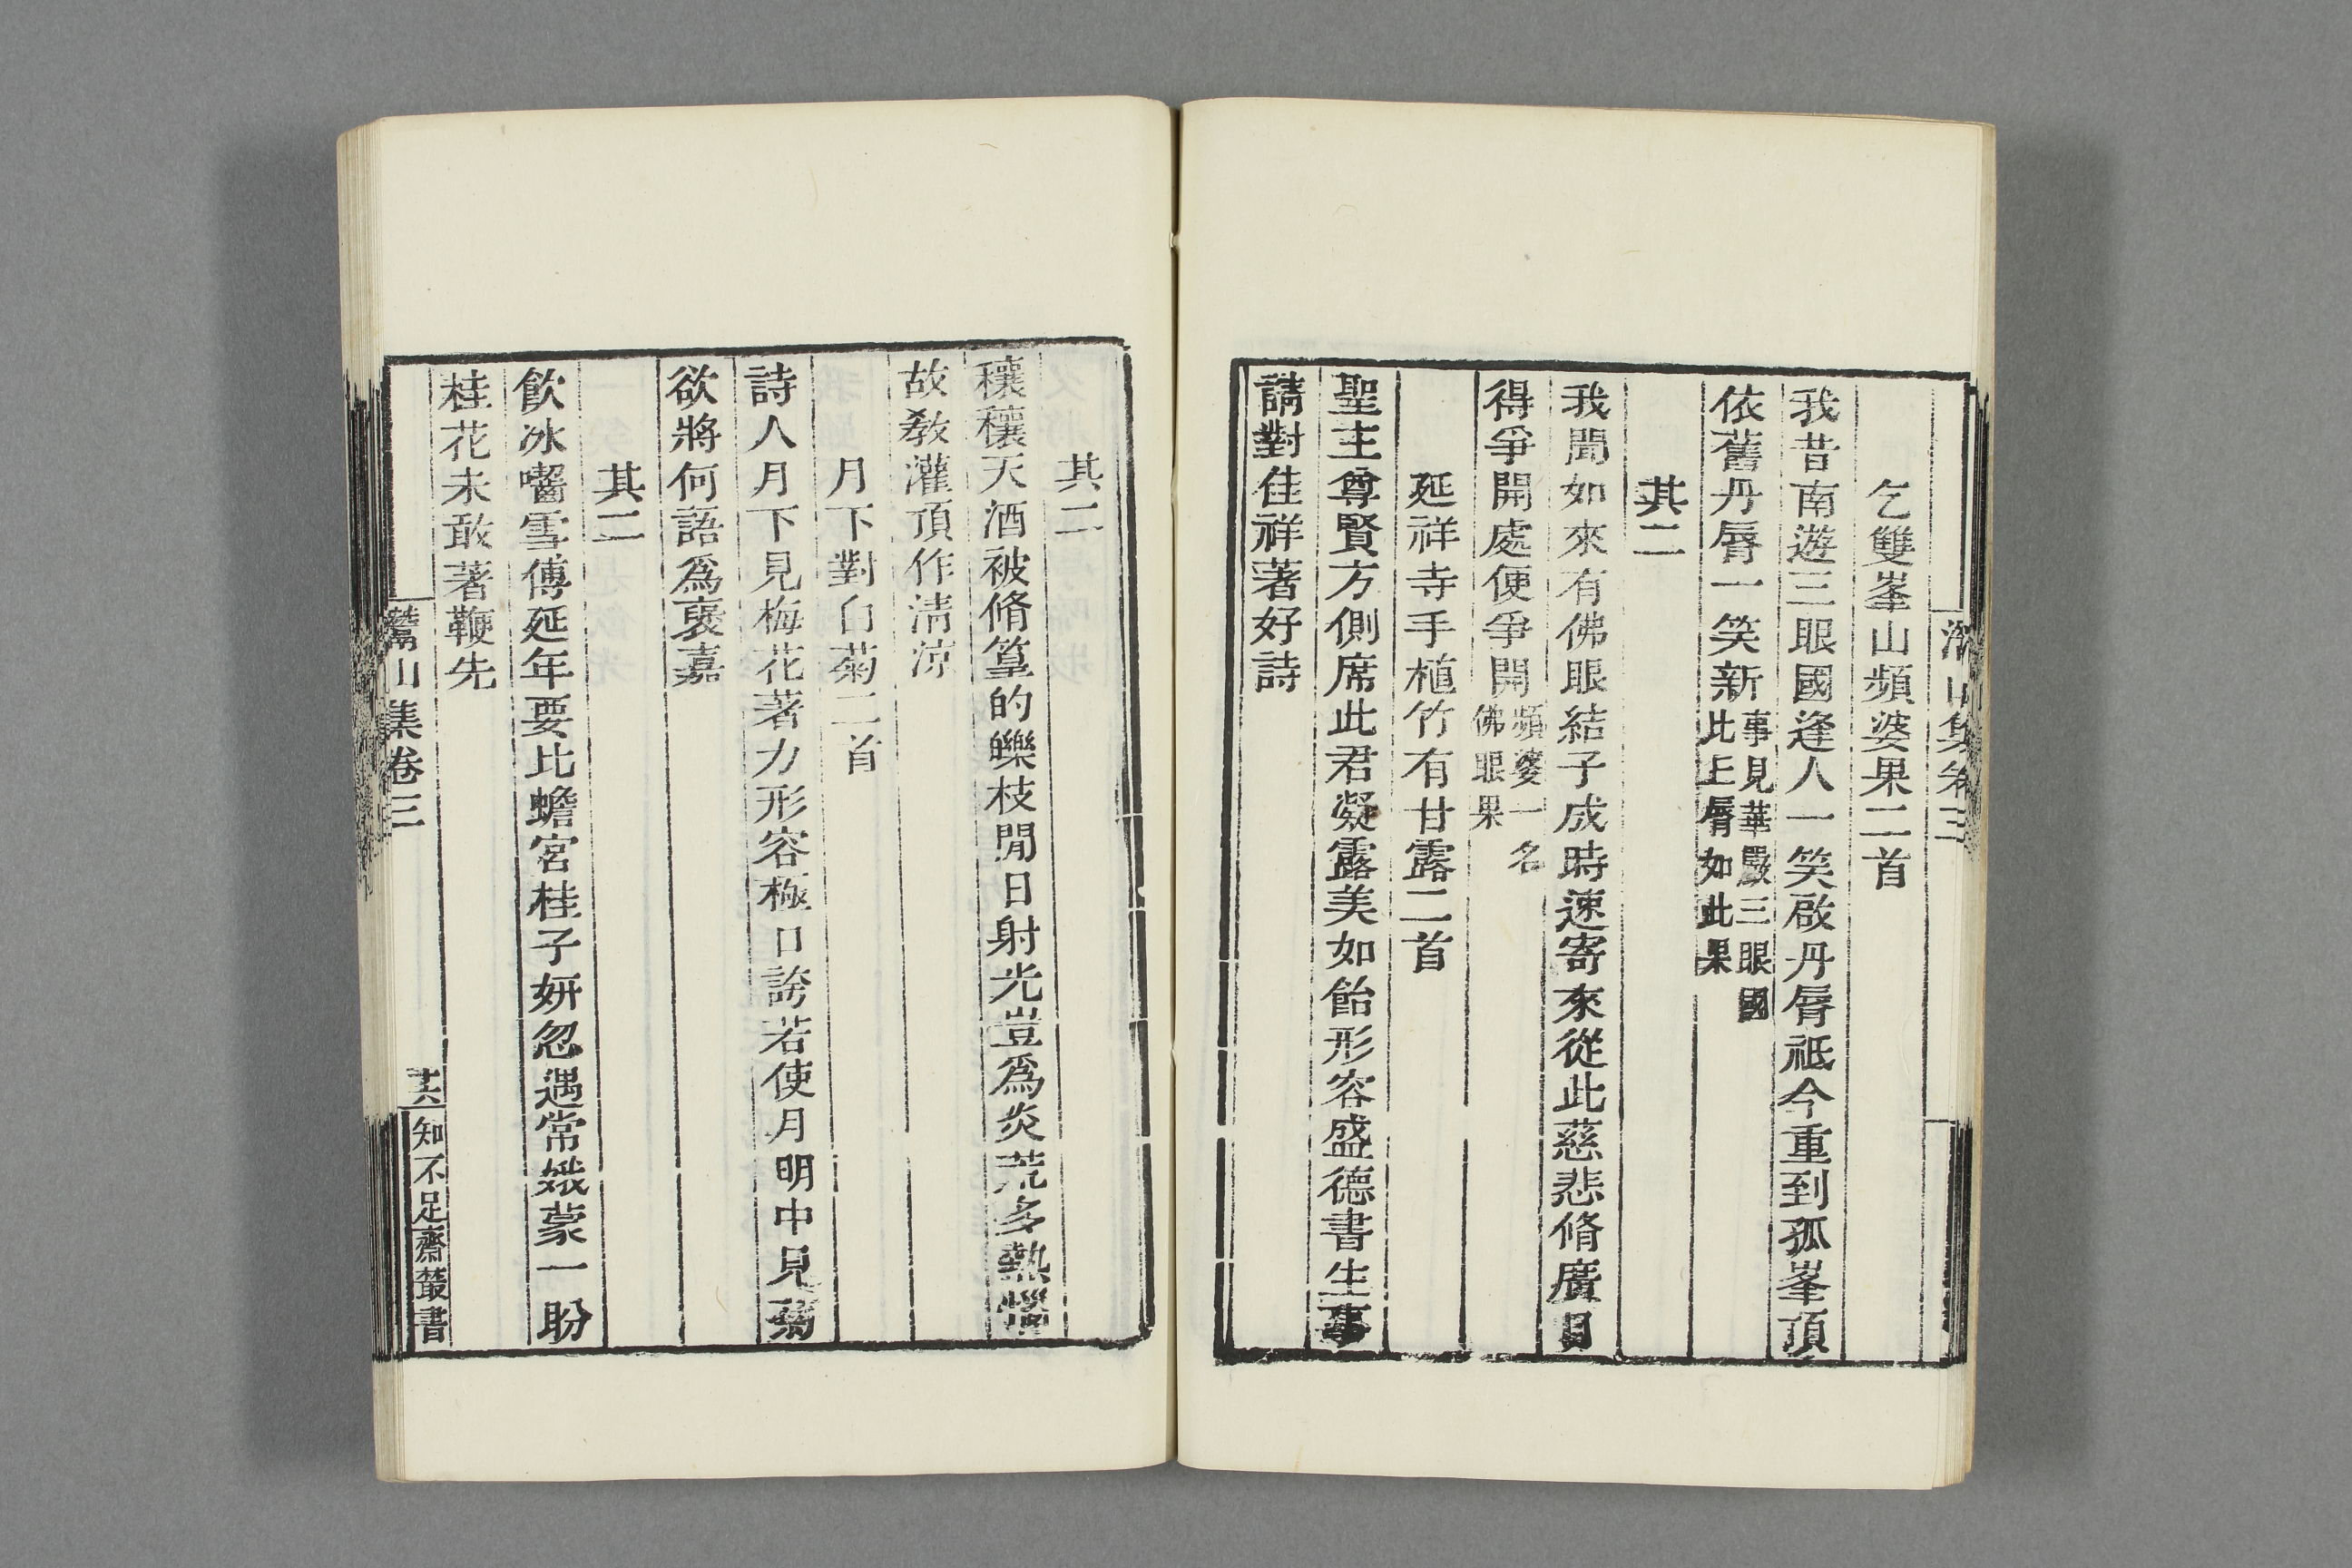 山集卷三
乞雙峯山頻婆果二首
我昔南遊三眼國逢人一笑啟丹脣祗今重到孤峯頂
依舊丹脣一笑新事見華嚴三眼國
此上脣如此果
其二
我聞如來有佛眼結子成時速寄來從此慈悲脩廣目
得爭開處便爭開頻婆一名
佛眼果
延祥寺手植竹有甘露二首
聖主尊賢方側席此君凝露美如飴形容盛德書生事
請對佳祥著好詩
其二
穰穰天酒被脩篁的皪枝閒日射光豈爲炎荒多熱惱
故教灌頂作清涼
月下對白菊二首
詩人月下見梅花著力形容極口誇若使月明中見菊
欲將何語爲褒嘉
其二
飲冰囓雪傅延年要比蟾宮桂子妍忽遇常娥蒙一盼
桂花未敢著鞭先
灊山集卷三
共
知不足齋叢書